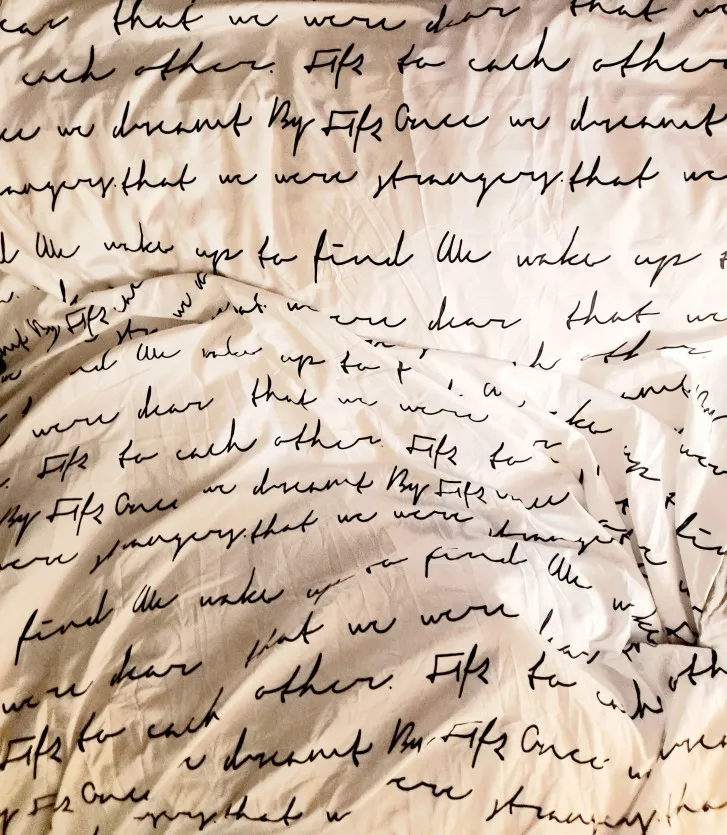 that we were dear that we
each other. Fifs to each other
we dreamt By Fifs Once we dreamt
strangers.that we were strangers.that we
We wake up to find We wake up
By Fifs
were dear that we
We wake up to
were dear that we were
Fifs to each other. Fifs to
By Fifs Once we dreamt By Fifs
were strangers.that we were strangers
find We wake up to find We
were dear that we were
Fifs to each other. Fifs to each oth
dreamt By Fifs Once we
Once
that were strangers.tha